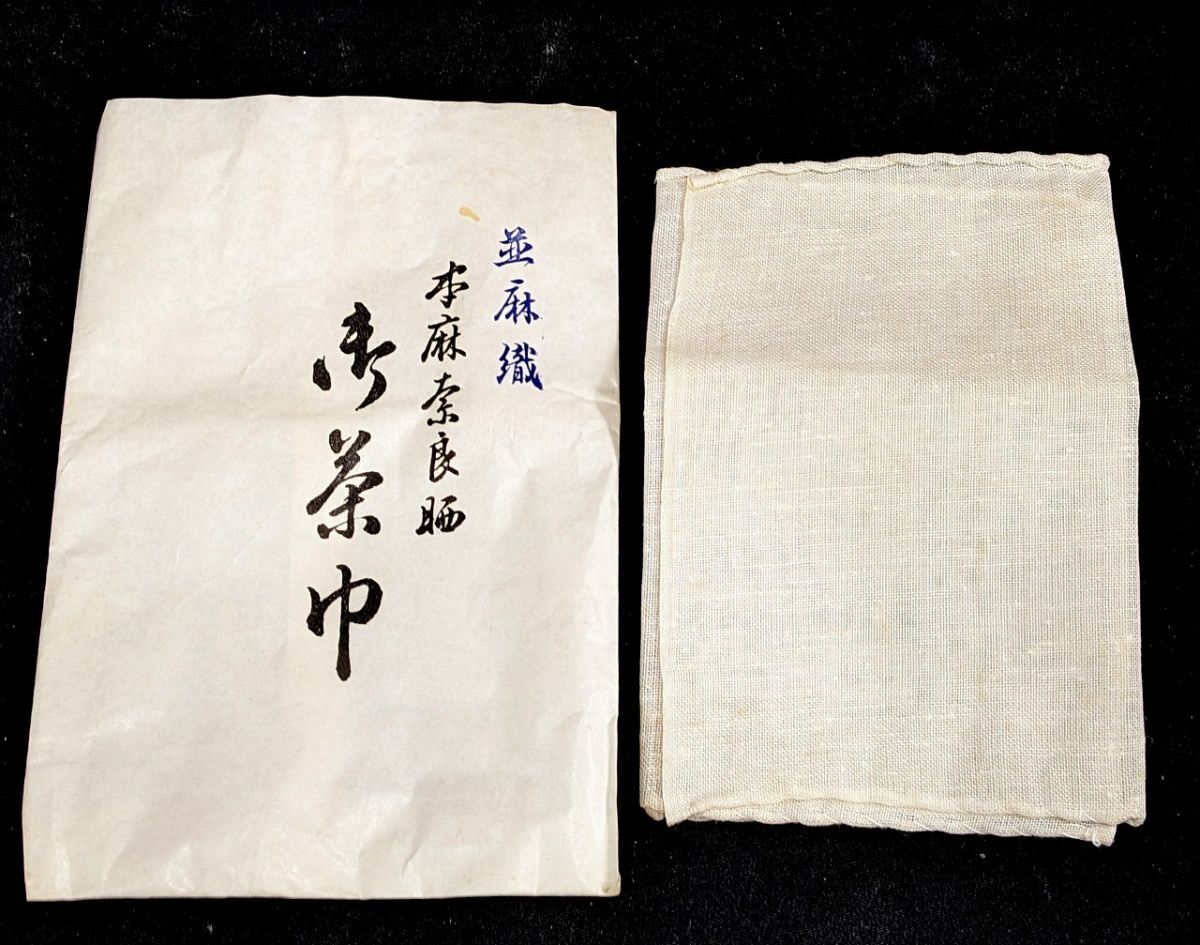 並麻織
本麻奈良晒
御茶巾